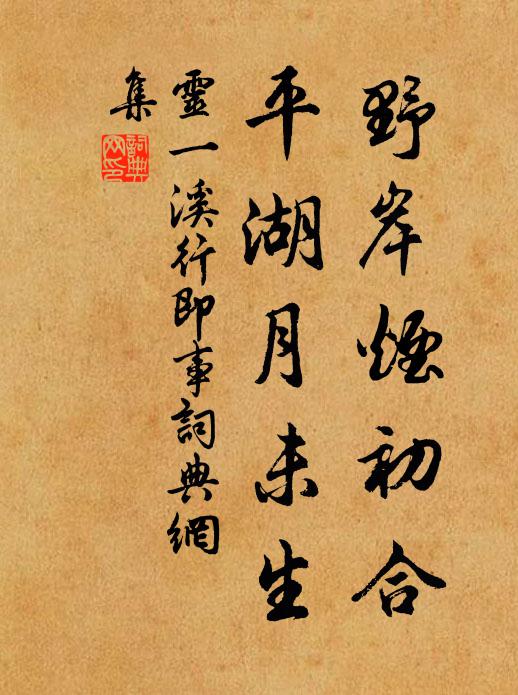 野岸煙初合
平湖月未生
靈一溪行即事詞典網
集
詞典
网印